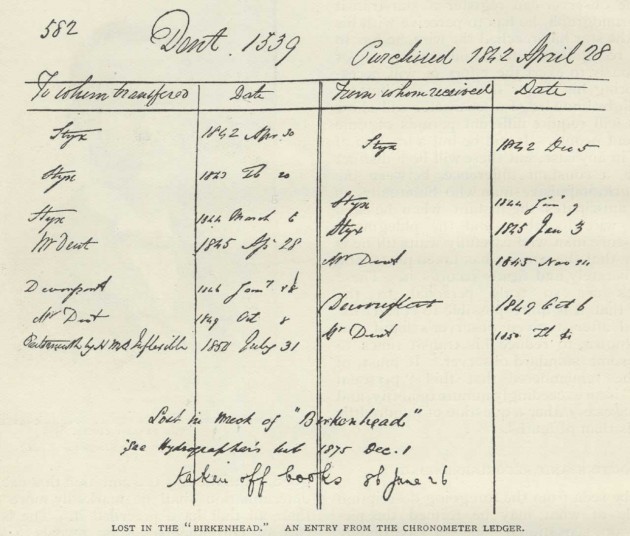 582
Dent. 1339
Purchased 1842 April 28
To whom transfered Date From whom received Date
Styx 1842 Apr 30
Styx 1842 Dec 5
Styx 1843 Feb 20
Styx 1844 Jany 9
Styx 1844 March 6
Styx 1845 Jan 3
Mr Dent 1845 Apr 28
Mr Dent 1845 Nov
Devonport
Devonport 1849 Oct 6
Mr Dent 1849 Oct 8
Mr Dent 1850
Portsmouth by H M S Inflexible 1850 July 31
Lost in Wreck of "Birkenhead"
See Hydrographer's let 1875 Dec. 1
Taken off books 86 June 26
LOST IN THE "BIRKENHEAD." AN ENTRY FROM THE CHRONOMETER LEDGER.